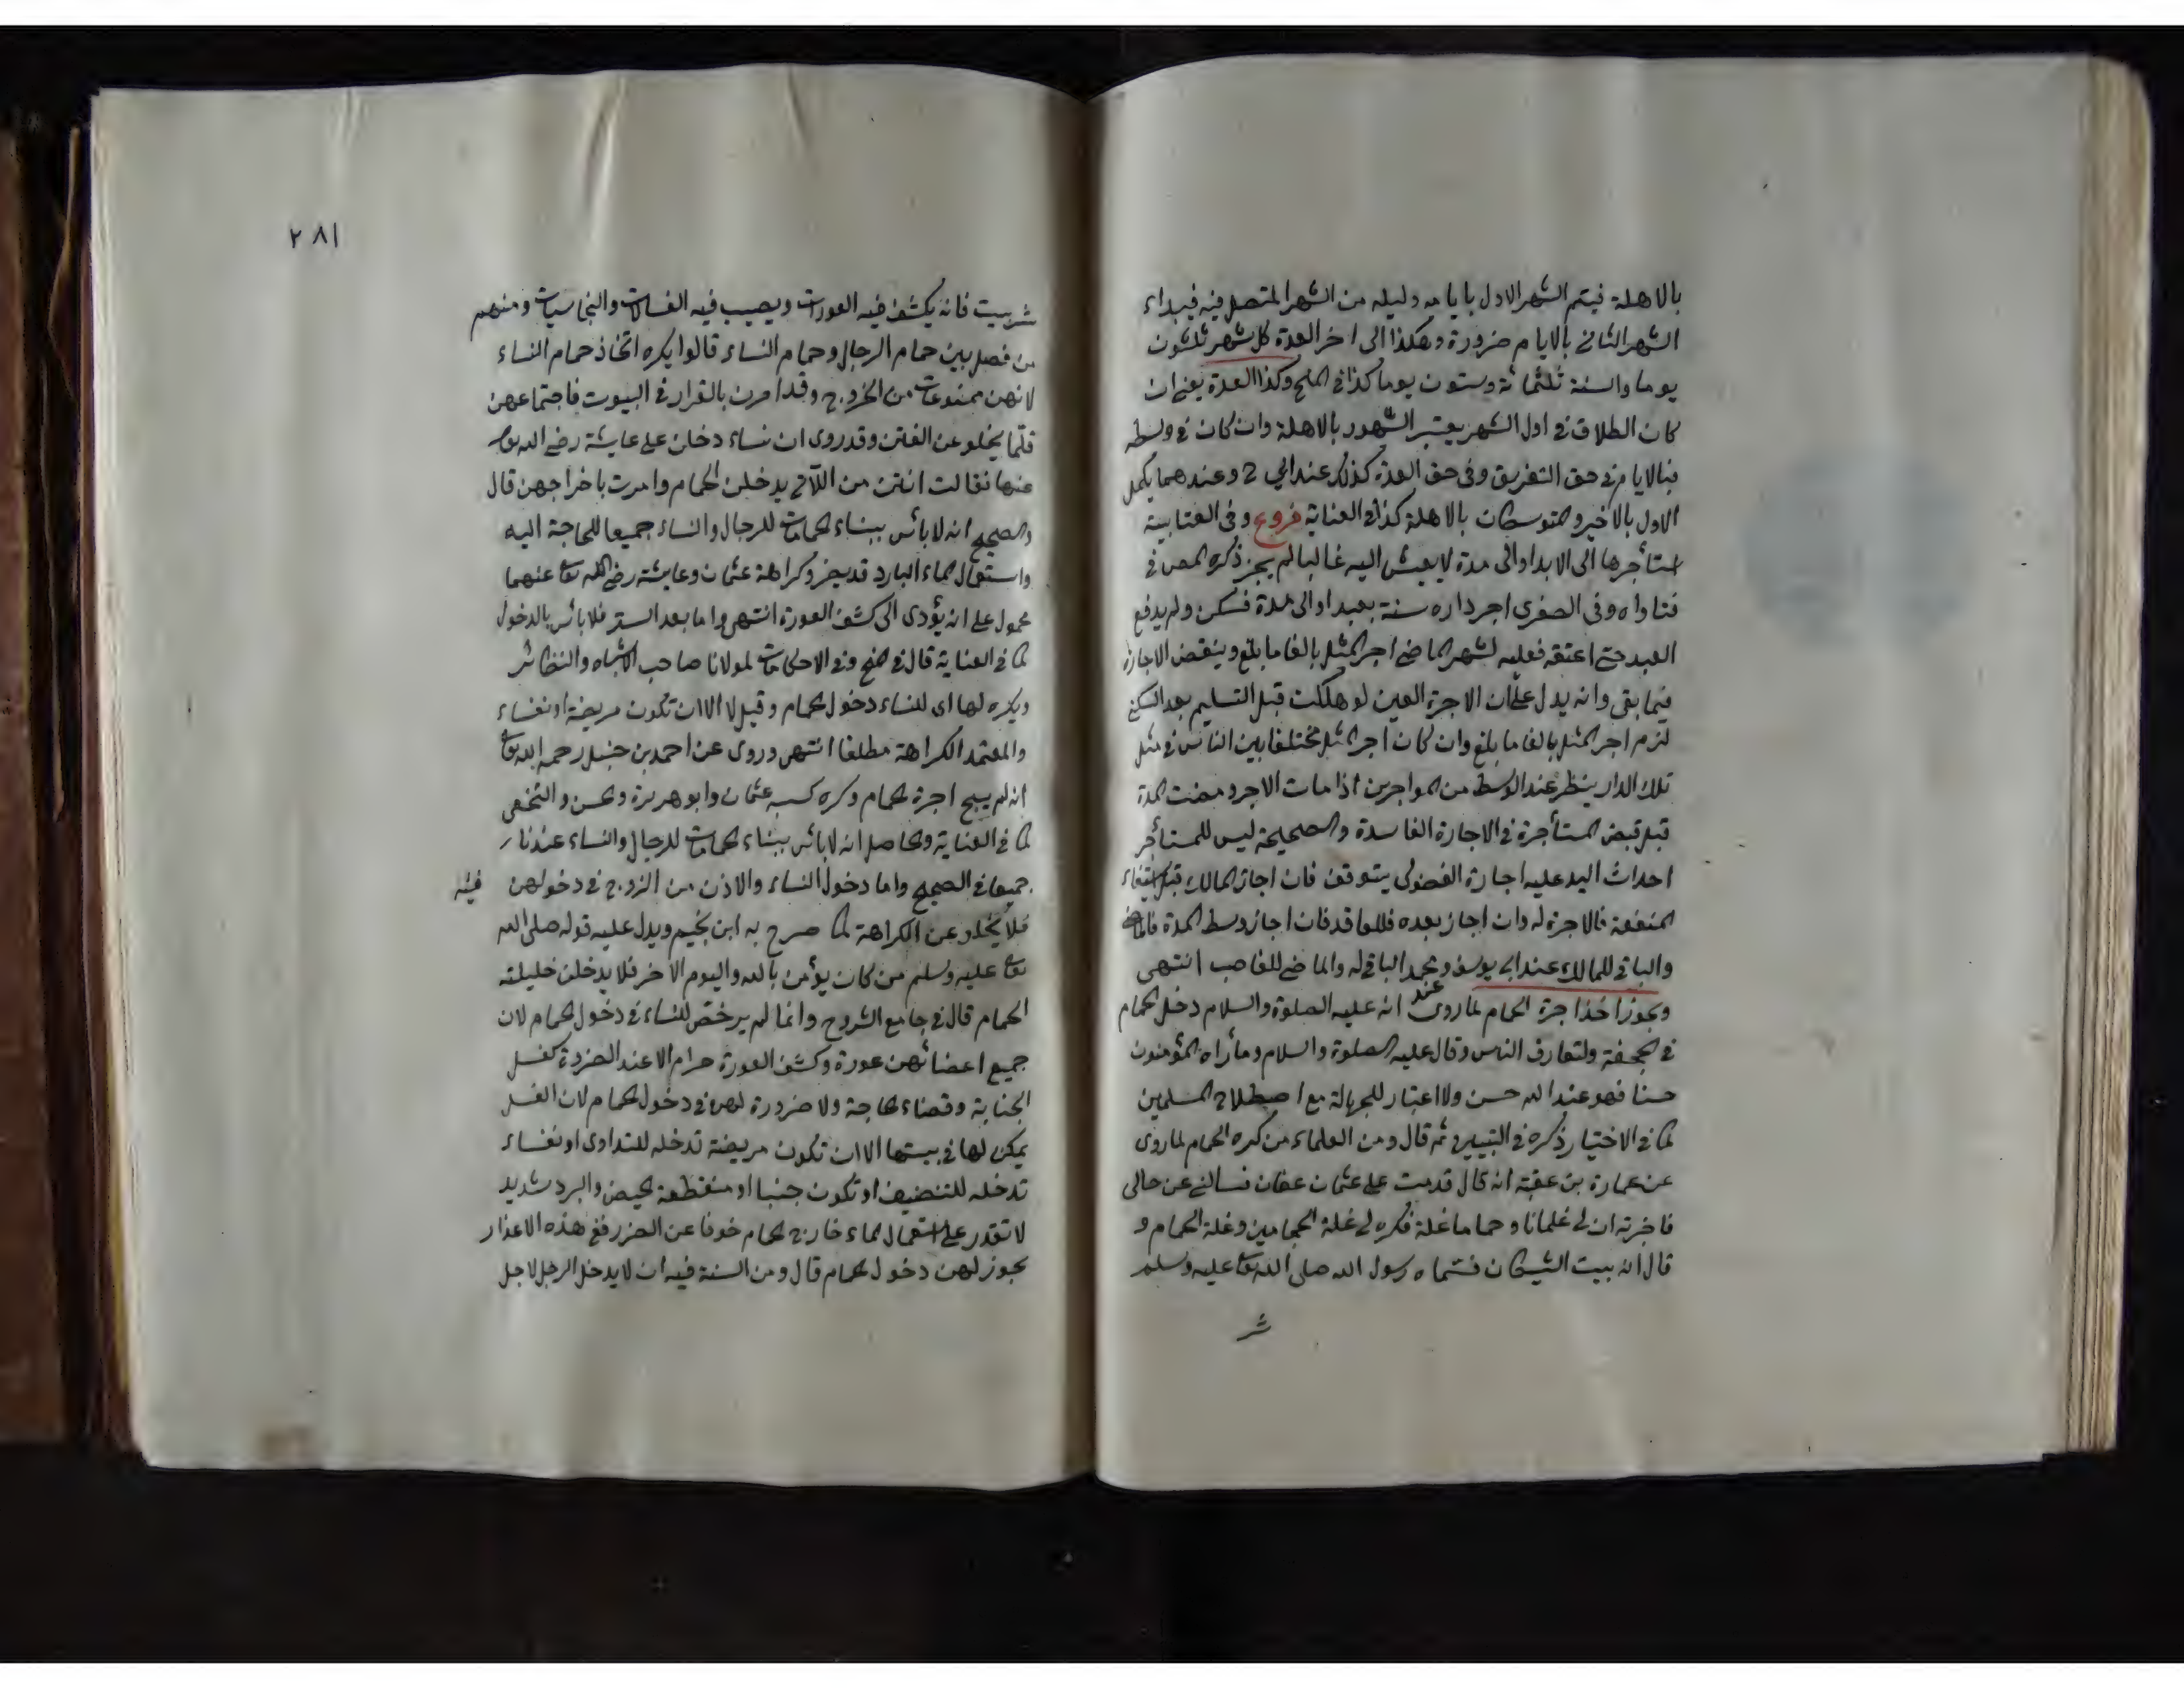 بالاهلة فيتم الشهر الاول بايامه وليله من الشهر المتصل فيه فيبداء
الشهر الثاني بالايام ضرورة وهكذا الى اخر العدة كل شهر ثلثون
يوما والسنة ثلثمائة وستون يوما كذا في المنح وكذا العدة يعني ان
كان الطلاق في اول الشهر يعتبر الشهور بالاهلة وان كان في وسطه
فبالايام في حق التفريق وفي حق العدة كذلك عند ابي ح وعندهما يكمل
الاول بالاخير والمتوسطات بالاهلة كذا في العناية فروع وفي العتابية
استأجرها الى الابد او الى مدة لا يعيش اليه غالبا لم يجز ذكره المص في
فتاواه وفي الصغرى اجر داره سنة بعبد او الى مدة فسكن ولم يدفع
العبد حتى اعتقه فعليه لشهر الماضي اجر المثل بالغا ما بلغ وينقض الاجارة
فيما بقى وانه يدل على ان الاجرة العين لو هلكت قبل التسليم بعد السكنى
لزم اجر المثل بالغا ما بلغ وان كان اجر المثل مختلفا بين الناس في مثل
تلك الدار ينظر عند الوسط من المواجرين اذا مات الاجر ومضت المدة
قبل قبض المستأجرة في الاجارة الفاسدة والصحيحة ليس للمستأجر
احداث اليد عليه اجارة الفضولى يتوقف فان اجاز المالك قبل استيفاء
المنفعة فالاجرة له وان اجاز بعده فللعاقد فان اجاز وسط المدة فالماضي
والباقي للمالك عند ابي يوسف ومحمد الباقي له والماضي للغاصب انتهى
ويجوز اخذ اجرة الحمام لما روى عنه انه عليه الصلوة والسلام دخل الحمام
في الجحفة ولتعارف الناس وقال عليه الصلوة والسلام وما رأه المؤمنون
حسنا فهو عند الله حسن ولا اعتبار للجهالة مع اصطلاح المسلمين
كما في الاختيار ذكره في التبيين ثم قال ومن العلماء من كره الحمام لما روى
عن عمارة بن عقبة انه قال قدمت على عثمان عفان فسالني عن حالى
فاخبرته ان لي غلمانا وحماما غلة فكره لي غلة الحجامين وغلة الحمام و
قال انه بيت الشيطان فسماه رسول الله صلى الله تعا عليه وسلم
شر
٢٨١
شر بيت فانه يكشف فيه العورات ويصيب فيه الغسالات والنجاسيات ومنهم
من فصل بين حمام الرجال وحمام النساء قالوا يكره اتخاذ حمام النساء
لانهن ممنوعات من الخروج وقد امرن بالقرار في البيوت فاجتماعهن
قلما يخلو عن الفتن وقد روى ان نساء دخلن على عايشة رضي الله تعا
عنها فقالت انتن من اللآتي يدخلن الحمام وامرت باخراجهن قال
والصحيح انه لا بأس ببناء الحمامات للرجال والنساء جميعا للحاجة اليه
واستعمال الماء البارد قد يضر وكراهة عثمان وعايشة رضي الله تعا عنهما
محمول على انه يؤدى الى كشف العورة انتهى واما بعد الستر فلا بأس بالدخول
كما في العناية قال في المنح وفي الاحكامات لمولانا صاحب الاشباه والنظائر
ويكره لها اى للنساء دخول الحمام وقيل لا الا ان تكون مريضة او نفساء
والمعتمد الكراهة مطلقا انتهى وروى عن احمد بن حنبل رحمه الله تعا
انه لم يبح اجرة الحمام وكره كسبه عثمان وابو هريرة والحسن والنخعى
كما في العناية والحاصل انه لا بأس ببناء الحمامات للرجال والنساء عندنا
جميعا في الصحيح واما دخول النساء والاذن من الزوج في دخولهن فيه
فلا يخلو عن الكراهة كما صرح به ابن نجيم ويدل عليه قوله صلى الله
تعا عليه وسلم من كان يؤمن بالله واليوم الاخر فلا يدخلن حليلته
الحمام قال في جامع الشروح وانما لم يرخص للنساء في دخول الحمام لان
جميع اعضائهن عورة وكشف العورة حرام الا عند الضرورة كغسل
الجنابة وقضاء الحاجة ولا ضرورة لهن في دخول الحمام لان الغسل
يمكن لها في بيتها الا ان تكون مريضة تدخله للتداوى او نفساء
تدخله للتنضيف او تكون جنبا او منقطعة الحيض والبرد شديد
لا تقدر على استعمال الماء خارج الحمام خوفا عن الضرر ففي هذه الاعذار
يجوز لهن دخول الحمام قال ومن السنة فيه ان لا يدخل الرجل لاجل